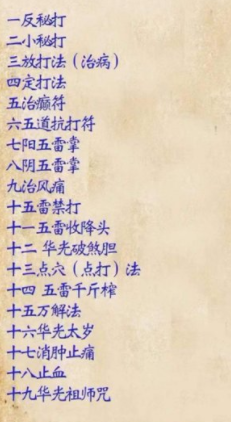 一反秘打
二小秘打
三放打法（治病）
四定打法
五治癫符
六五道抗打符
七阳五雷掌
八阴五雷掌
九治风痛
十五雷禁打
十一五雷收降头
十二 华光破煞胆
十三点穴（点打）法
十四 五雷千斤榨
十五万解法
十六华光太岁
十七消肿止痛
十八止血
十九华光祖师咒